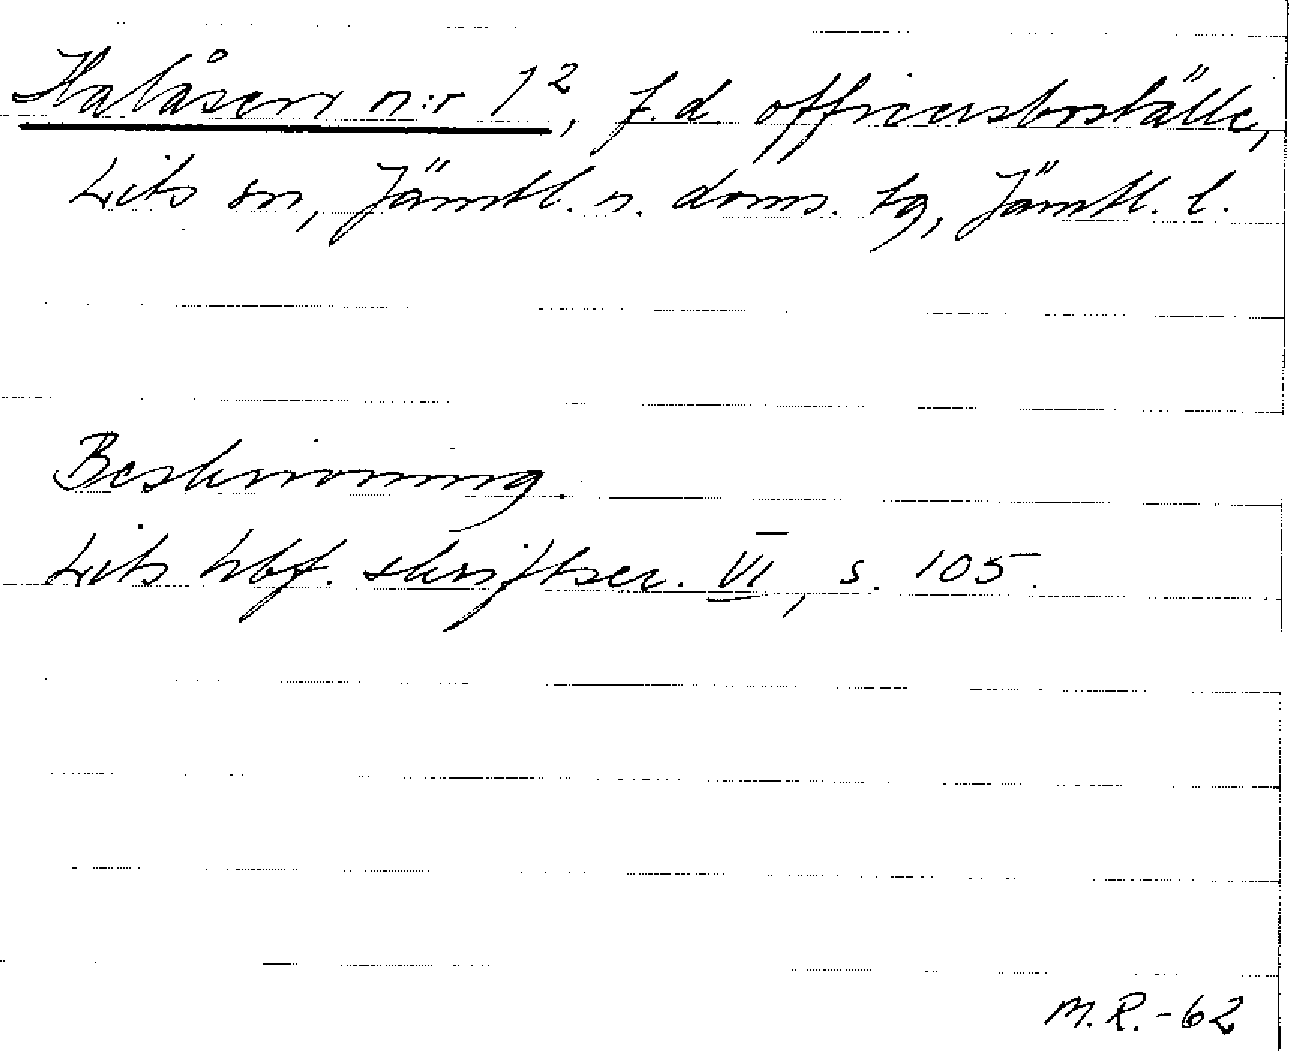 Halåsen n:r 1², f.d. officersboställe,
Lits sn, Jämtl. n. doms. tg, Jämtl. l.
Beskrivning.
Lits hbf. skriftser. VI, s. 105.
M.R.-62